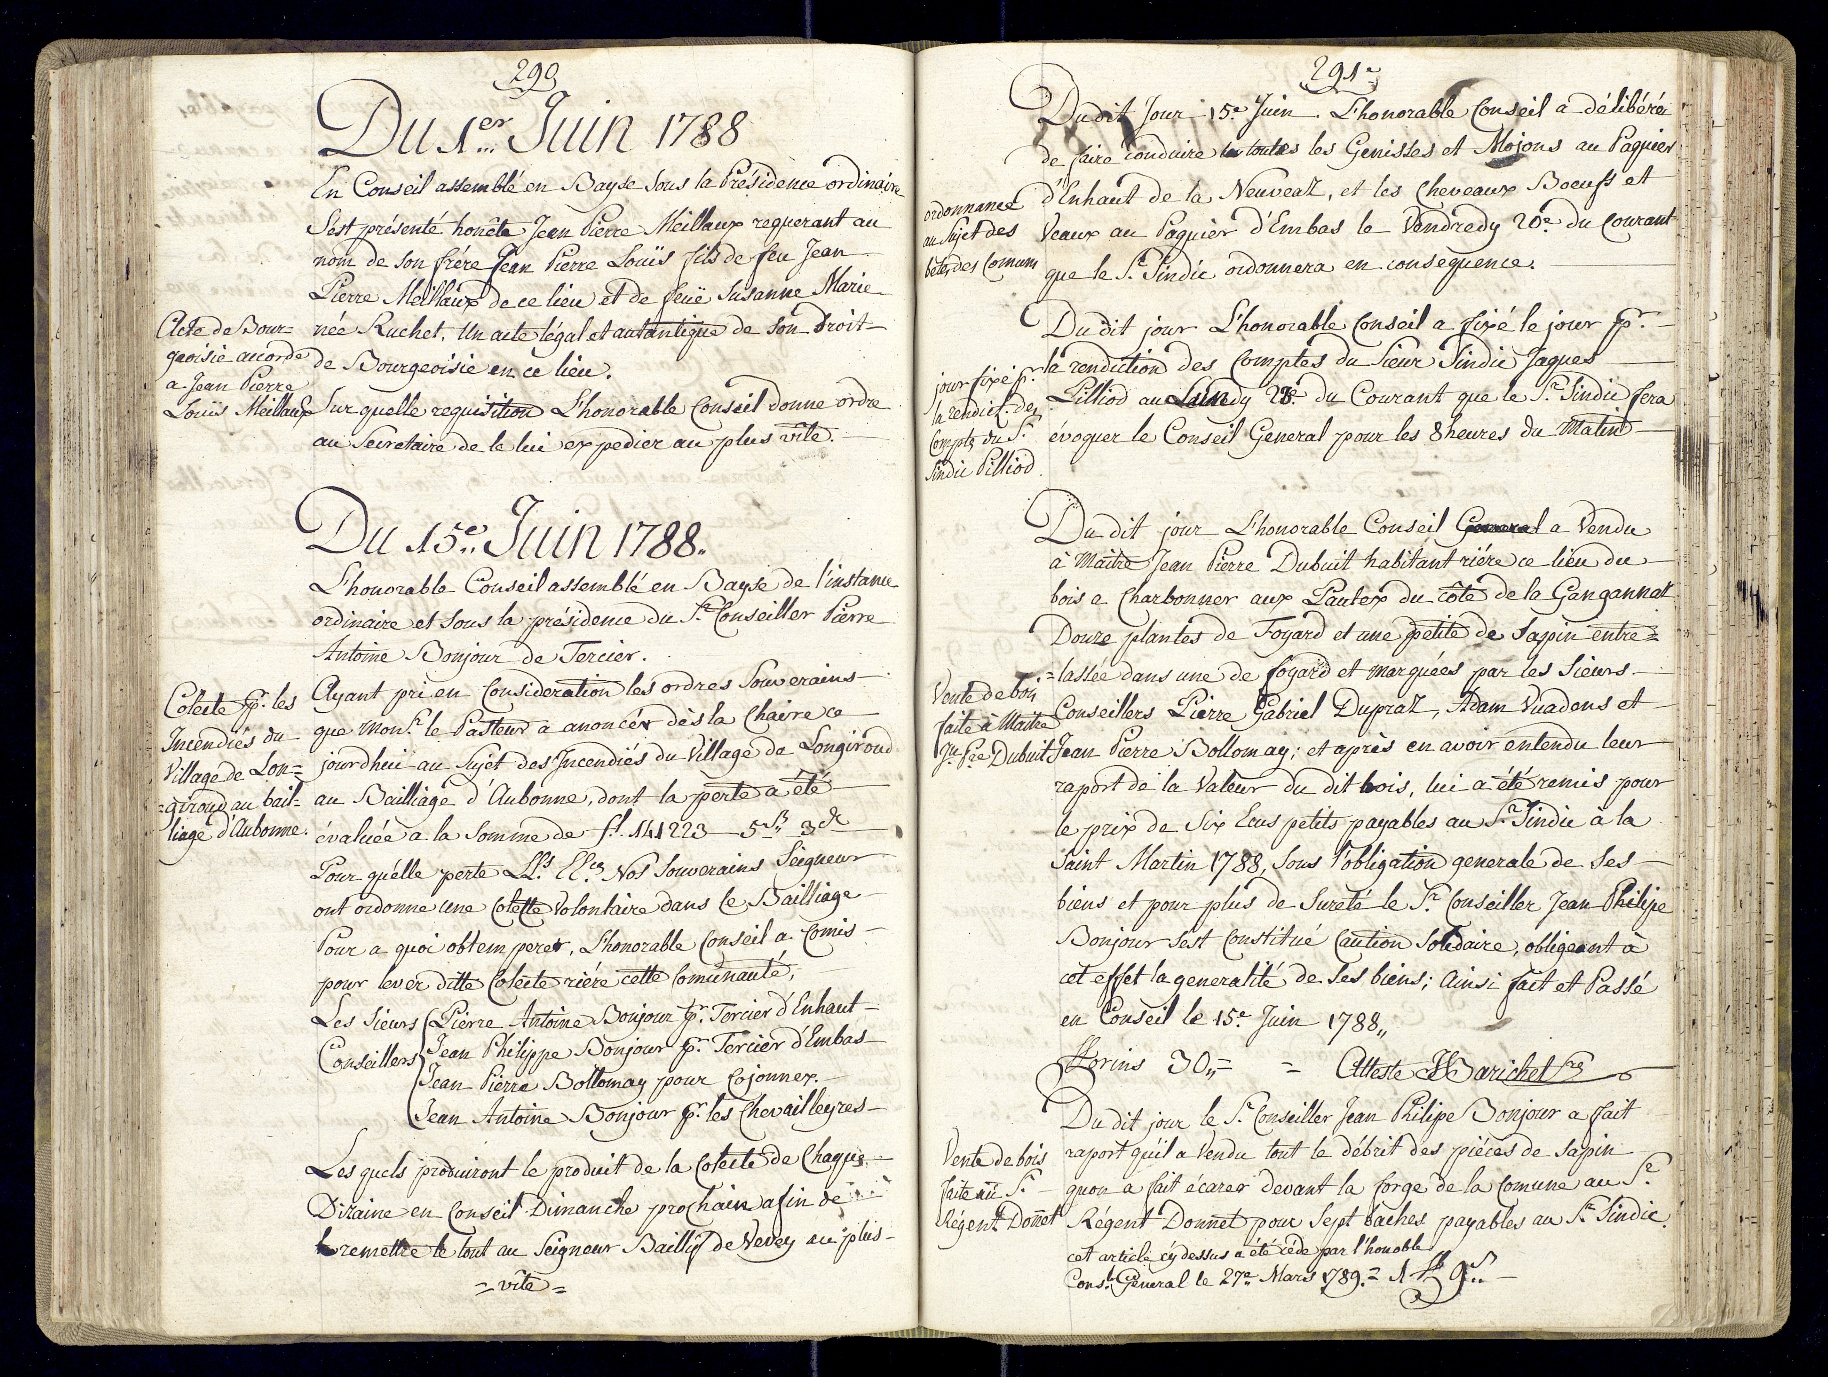 290
Du 1er Juin 1788
En Conseil assemblé en Bayse sous la Présidence ordinaire
S'est présenté honête Jean Pierre Meillaux requerant au
nom de son frére Jean Pierre Louïs fils de feu Jean
Pierre Meillaux de ce lieu et de feuë Susanne Marie
Acte de Bour=
geoisie accordé
a Jean Pierre
Louïs Meillaux
née Ruchet. Un acte légal et autantique de son Droit
de Bourgeoisie en ce lieu.
Sur quelle requisition L'honorable Conseil donne ordre
au Secretaire de le lui expedier au plus vîte.
Du 15e Juin 1788.
L'honorable Conseil assemblé en Bayse de l'instance
ordinaire et sous la présidence du Sr Conseiller Pierre
Antoine Bonjour de Tercier.
Colecte pr. les
Incendiés du
Village de Lon=
=giroud au bail=
liage d'Aubonne.
Ayant pri en Consideration les ordres Souverains
que Monsr. le Pasteur a anoncér dès la Chaire ce
jourdheüi au Sujet des Incendiés du Village de Longiroud
au Bailliage d'Aubonne, dont la perte a été
évaluée a la Somme de fl. 141223 — 5 s. 3 d.
Pour quélle perte LLs. EEces Nos Souverains Seigneur
ont ordonne une Colette Volontaire dans le Bailliage
Pour a quoi obtemperer, L'honorable Conseil a Comis
pour lever ditte Colecte riére cette Comunauté,
Les Sieurs Pierre Antoine Bonjour pr. Tercier d'Enhaut
Conseillers Jean Philippe Bonjour pr. Tercier d'Embas
Jean Pierre Bollomay pour Cojonnex.
Jean Antoine Bonjour pr. les Chevailleyres
Les quels produiront le produit de la Colecte de Chaque
Dizaine en Conseil Dimanche prochain afin de
remettre le tout au Seigneur Baillif de Vevey au plus
= vîte =
291e
Du dit Jour 15e Juin. L'honorable Conseil a délibéré
de faire conduire toutes les Genisses et Mojons au Paquier
ordonnance
au Sujet des
bêtes des Comuns
d'Enhaut de la Neuveaz, et les Cheveaux Boeufs et
Veaux au Paquier d'Embas le Vendredy 20e. du Courant
que le Sr. Sindic ordonnera en consequence.
Du dit jour L'honorable Conseil a fixé le jour pr.
jour fixé pr.
la rendict. des
Compts du Sr.
Sindic Pilliod
la rendiction des Comptes du Sieur Sindic Jaques
Pilliod au Lundy 23e. du Courant que le Sr. Sindic fera
évoquer le Conseil General pour les 8 heures du Matin
Du dit jour L'honorable Conseil General a Vendu
à Maitre Jean Pierre Dubuit habitant riére ce lieu du
bois a Charbonner aux Pautex du côté de la Gangannat
Douze plantes de Foyard et une petite de Sapin entre=
Vente de bois
faite à Maitre
Jn. Pre Dubuit
=lassée dans une de foyard et marquées par les Sieurs
Conseillers Pierre Gabriel Dupraz, Adam Vuadens et
Jean Pierre Bollomay; et après en avoir entendu leur
raport de la Valeur du dit bois, lui a été remis pour
le prix de Six Ecus petits payables au Sr. Sindic à la
Saint Martin 1788, Sous l'obligation generale de Ses
biens et pour plus de Sureté le Sr. Conseiller Jean Philipe
Bonjour Sest Constitué Caution Solidaire, obligeant à
cet effet la generalité de Ses biens; Ainsi fait et Passé
en Conseil le 15e. Juin 1788,,
Florins 30,,= = Atteste Barichet
Du dit jour le Sr. Conseiller Jean Philipe Bonjour a fait
Vente de bois
faite au Sr.
Régent Donnet
raport quil a Vendu tout le débrit des piéces de Sapin
quon a fait écarer devant la forge de la Comune au Sr.
Régent Donnet pour Sept baches payables au Sr. Sindic.
cet article cy dessus a été cédé par l'honoble
Consl. General le 27e. Mars 1789. = 1 fl 9 s.